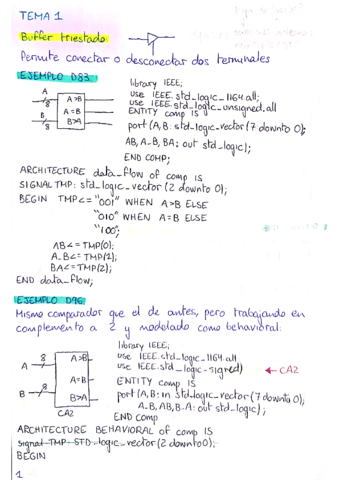 TEMA 1
Buffer triestado
Permite conectar o desconectar dos terminales
EJEMPLO D83
A
8
B
8
A>B
A=B
B>A
library IEEE;
use IEEE.std_logic_1164.all;
use IEEE.std_logic_unsigned.all
ENTITY comp IS
port (A,B: std_logic_vector (7 downto 0);
AB, A_B, BA: out std_logic);
END COMP;
ARCHITECTURE data_flow of comp IS
SIGNAL TMP: std_logic_vector (2 downto 0);
BEGIN TMP<= "001" WHEN A>B ELSE
"010" WHEN A=B ELSE
"100";
AB<= TMP(0);
A_B<= TMP(1);
BA<= TMP(2);
END data_flow;
EJEMPLO D96
Mismo comparador que el de antes, pero trabajando en
complemento a 2 y modelado como behavioral:
A
8
B
8
A>B
A=B
B>A
CA2
library IEEE;
use IEEE.std_logic_1164.all
use IEEE.std_logic_signed)
← CA2
ENTITY comp IS
port (A,B: in std_logic_vector (7 downto 0);
A-B, AB, B-A: out std_logic);
END comp
ARCHITECTURE BEHAVIORAL of comp IS
signal TMP STD_logic_vector (2 downto 0);
BEGIN
1